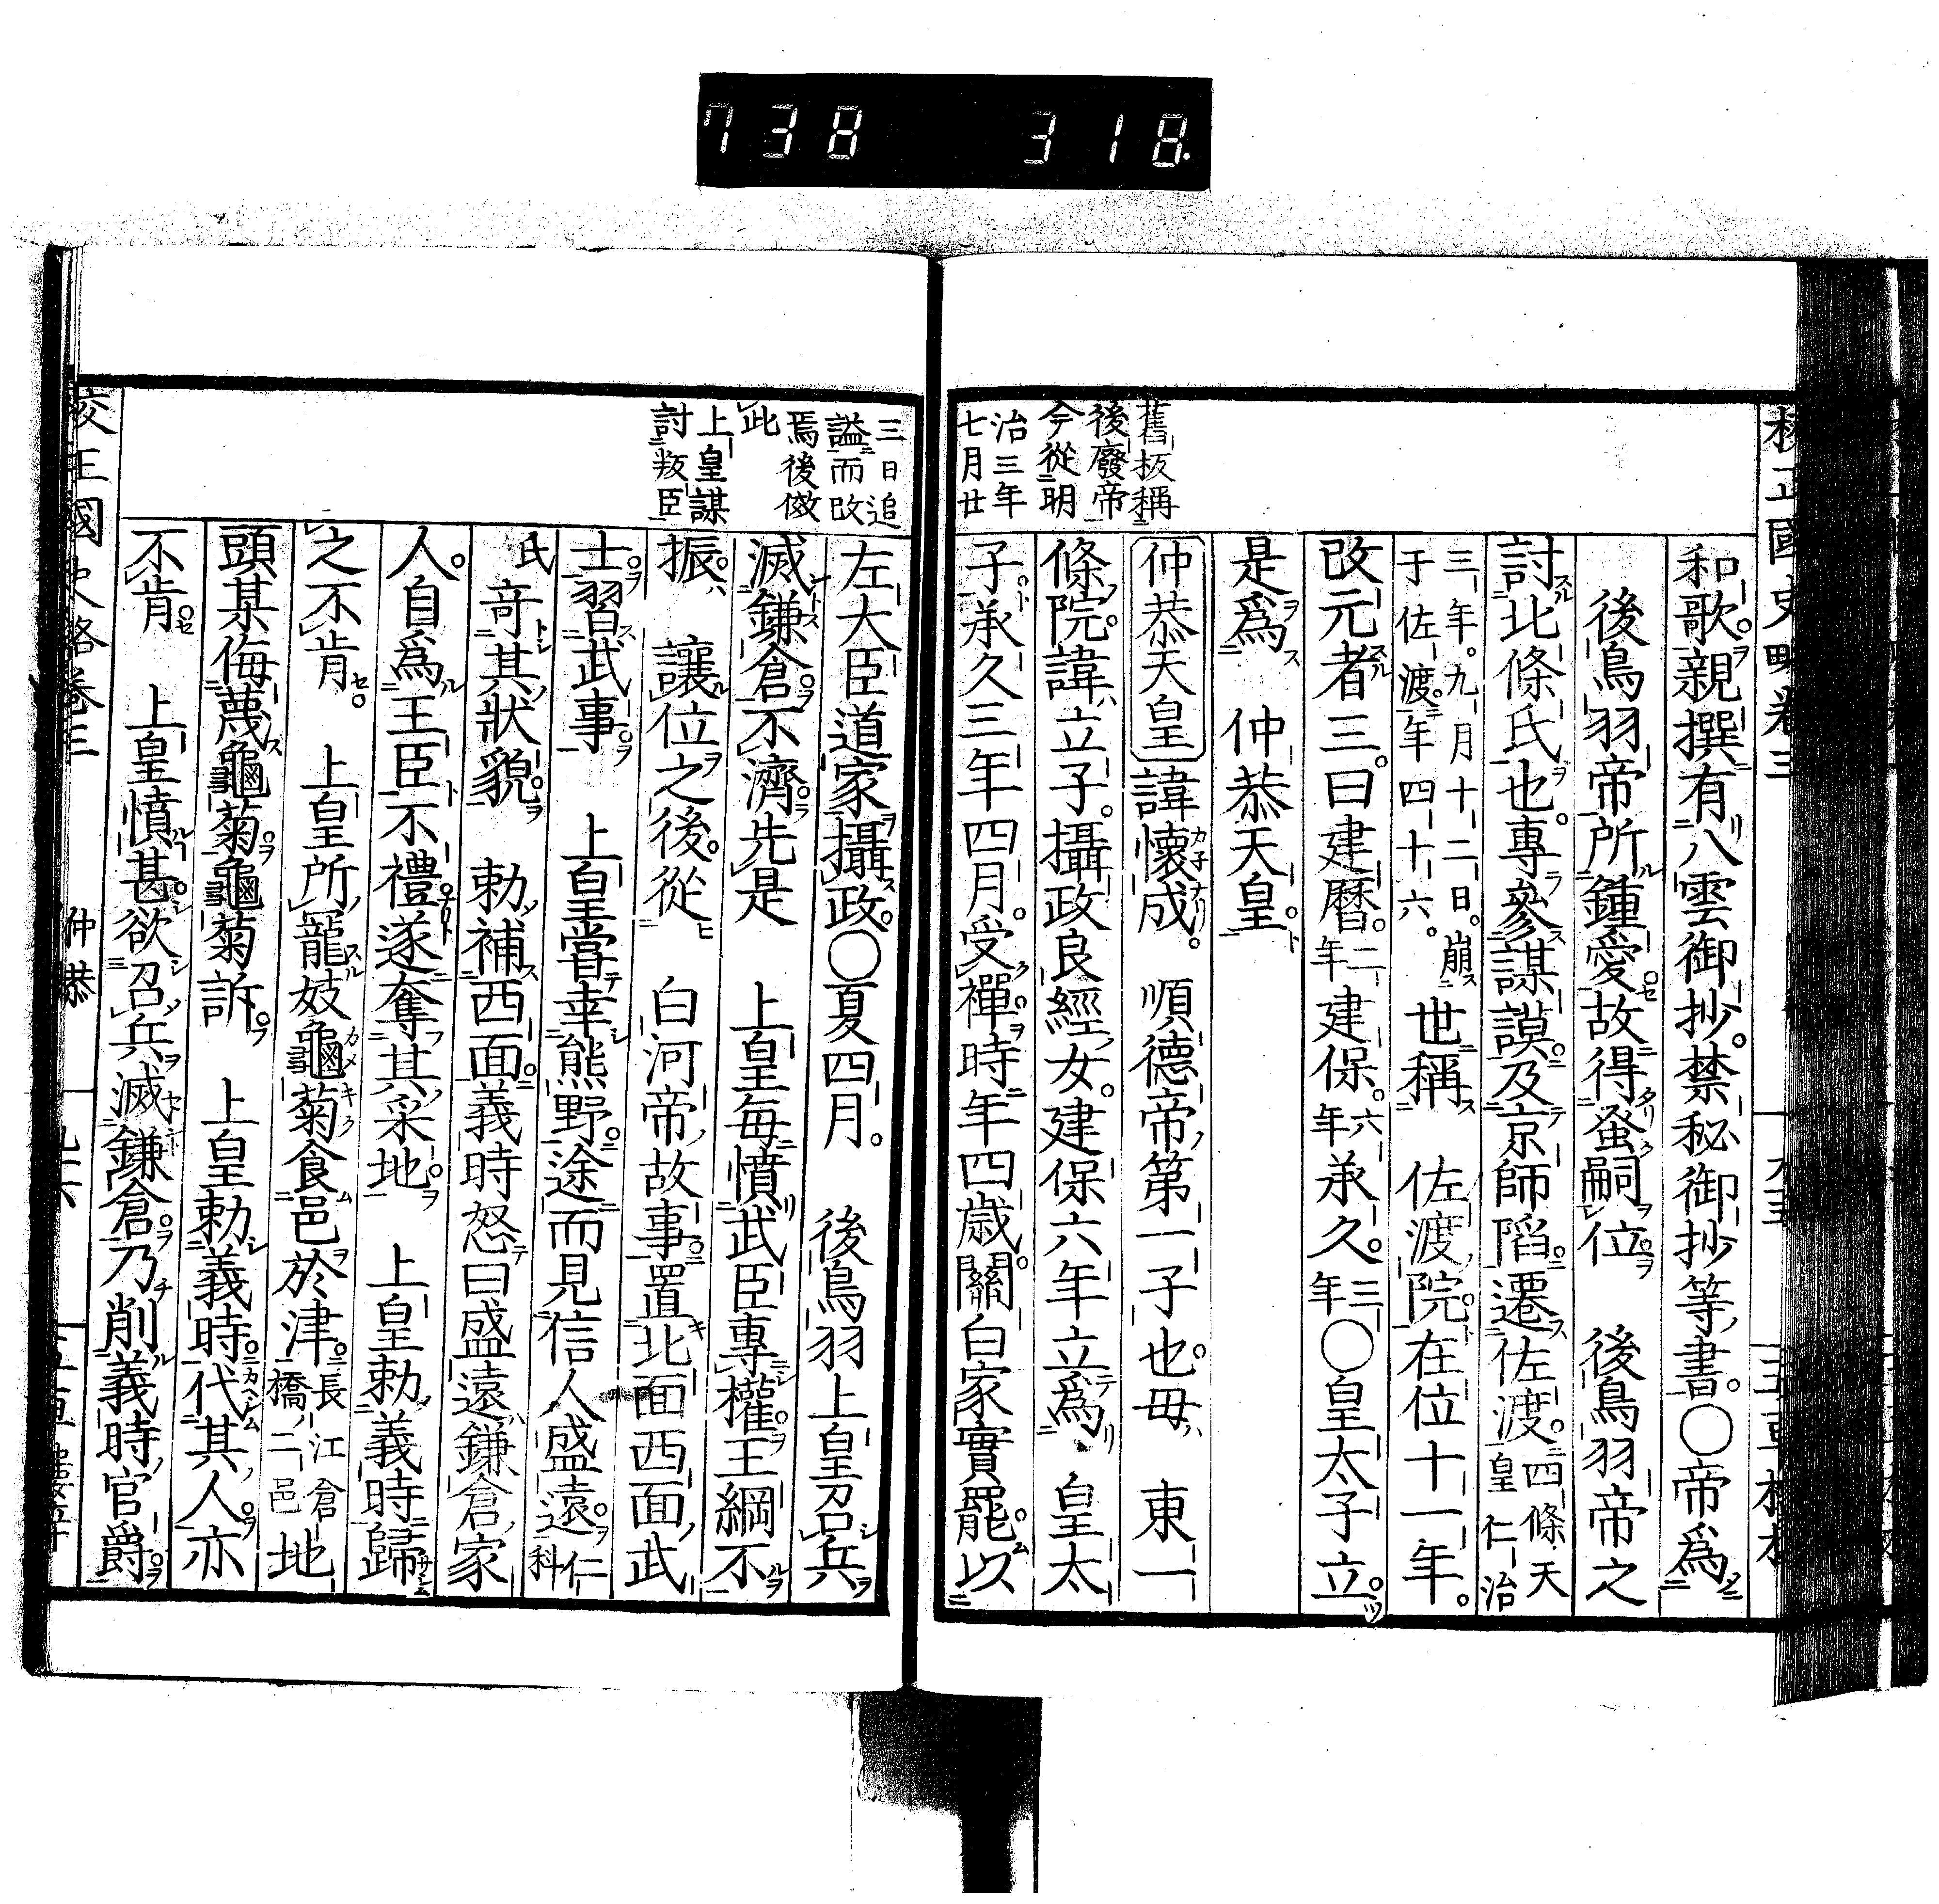 738 318
校正國史略卷三
和歌親撰有八雲御抄禁秘御抄等書○帝爲
後鳥羽帝所鍾愛故得蚤嗣位 後鳥羽帝之
討北條氏也專參謀謨及京師陷遷佐渡四條天皇仁治
三年九月十二日崩于佐渡年四十六世稱 佐渡院在位十一年
改元者三曰建曆二年建保六年承久三年○皇太子立
是爲 仲恭天皇
仲恭天皇諱懷成 順德帝第一子也母 東一
條院諱立子攝政良經女建保六年立爲 皇太
子承久三年四月受禪時年四歲關白家實罷以
舊板稱
後廢帝
今從明
治三年
七月廿
左大臣道家攝政○夏四月 後鳥羽上皇召兵
滅鎌倉不濟先是 上皇每憤武臣專權王綱不
振 讓位之後從 白河帝故事置北面西面武
士習武事 上皇嘗幸熊野途而見信人盛遠仁科
氏奇其狀貌 勅補西面義時怒曰盛遠鎌倉家
人自爲王臣不禮遂奪其采地 上皇勅義時歸
之不肯 上皇所寵妓龜菊食邑於津長江倉橋二邑地
頭某侮蔑龜菊龜菊訴 上皇勅義時代其人亦
不肯 上皇憤甚欲召兵滅鎌倉乃削義時官爵
三日追
謚而改
焉後傚
此
上皇謀
討叛臣
校正國史略卷三 仲恭